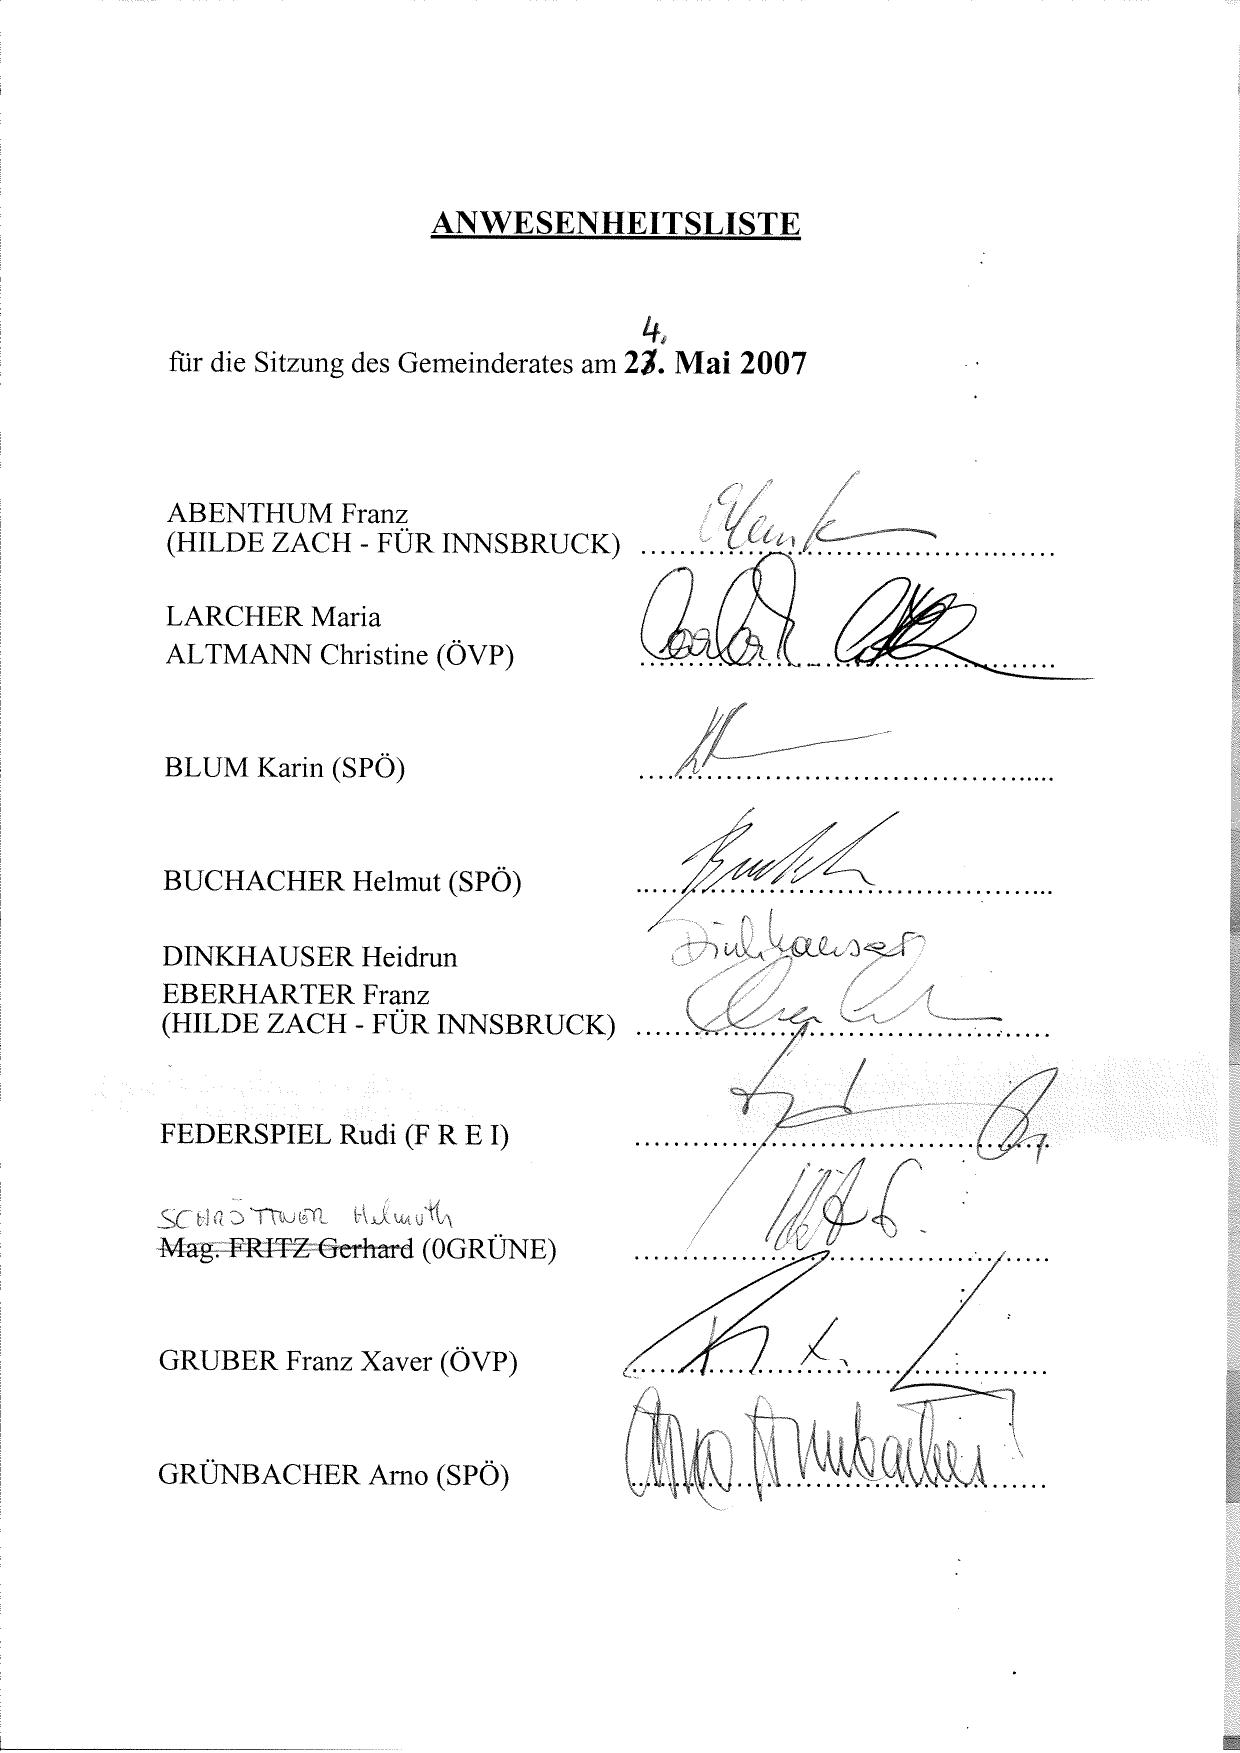 ANWESENHEITSLISTE
4.
für die Sitzung des Gemeinderates am 2. Mai 2007
ABENTHUM Franz
(HILDE ZACH - FÜR INNSBRUCK)
LARCHER Maria
ALTMANN Christine (ÖVP)
BLUM Karin (SPÖ)
BUCHACHER Helmut (SPÖ)
DINKHAUSER Heidrun Dinkhauser
EBERHARTER Franz
(HILDE ZACH - FÜR INNSBRUCK)
FEDERSPIEL Rudi (F R E I)
SCHRÖTTNER Helmuth
Mag. FRITZ Gerhard (0GRÜNE)
GRUBER Franz Xaver (ÖVP)
Arno Grünbacher
GRÜNBACHER Arno (SPÖ)